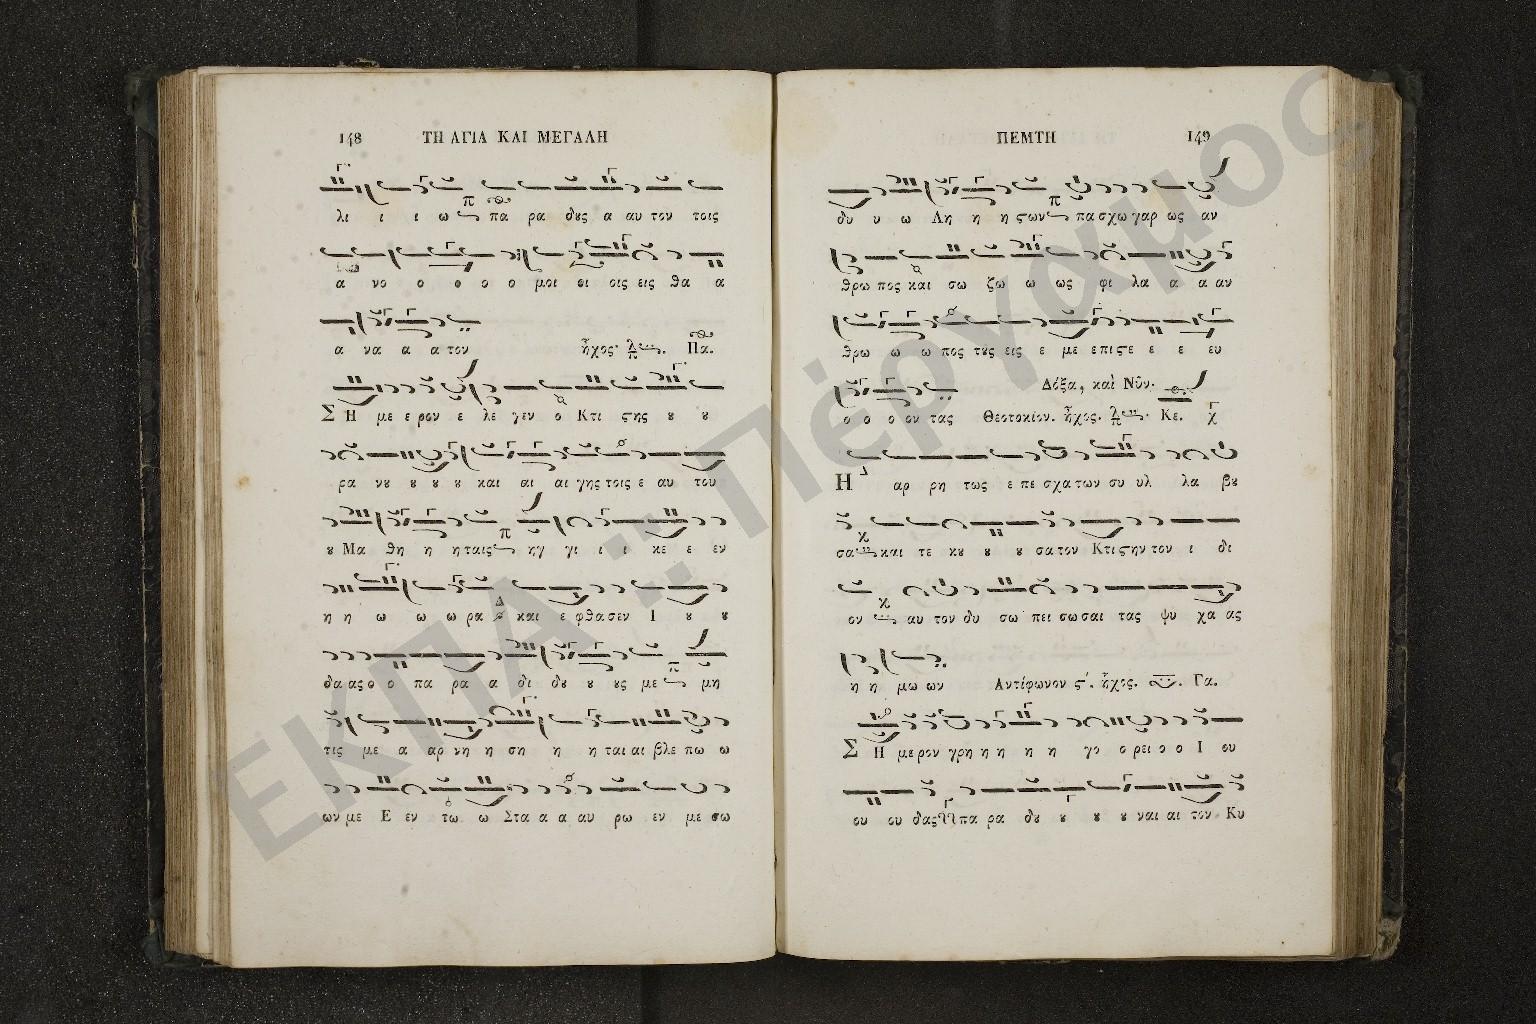 148 ΤΗ ΑΓΙΑ ΚΑΙ ΜΕΓΑΛΗ
λι ι ι ω πα ρα δȣς α αυ τον τοις
α νο ο ο ο ο μοι οι οις εις θα α
α να α α τον ἦχος· Πα.
Σ Η με ε ρον ε λε γεν ο Κτι ϛης ȣ ȣ
ρα νȣ ȣ ȣ ȣ και αι αι γης τοις ε αυ τοῦ
ȣ Μα θη η η ταις ηγ γι ι ι κε ε εν
η η ω ω ω ρα και ε φθα σεν Ι ȣ ȣ
δα ας ο ο πα ρα α δι δȣ ȣ ȣς με μη
τις με α αρ νη η ση η η ται αι βλε πω ω
ων με Ε εν τω ω Στα α α αυ ρω εν με σω
ΠΕΜΤΗ 149
δυ υ ω Λη η η ϛων πα σχω γαρ ως αν
θρω πος και σω ζω ω ως φι λα α α αν
θρω ω ω πος τȣς εις ε με επι ϛε ε ε ευ
ο ο ο ον τας Δόξα, καὶ Νῦν·
Θεοτοκίον. ἦχος. Κε. χ̄
Η αρ ρη τως ε πε σχα των συ υλ λα βȣ
σα και τε κȣ ȣ ȣ σα τον Κτι ϛην τον ι δι
ον αυ τον δυ σω πει σω σαι τας ψυ χα ας
η η μω ων Αντίφωνον ϛ΄. ἦχος. Γα.
Σ Η με ρον γρη η η η η γο ο ρει ο ο Ι ου
ου ου δας πα ρα δȣ ȣ ȣ ȣ ναι αι τον Κυ
ΕΚΠΑ :: Πέργαμος